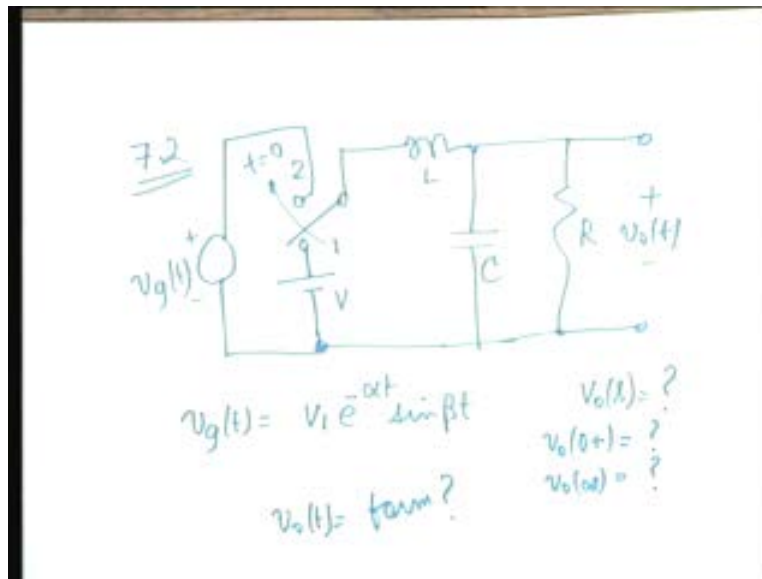 7.2
t=0
2
L
1
+
vg(t)
-
V
C
R
+
v₀(t)
-
vg(t) = V₁ e^-αt sin βt
V₀(s) = ?
v₀(0+) = ?
v₀(∞) = ?
v₀(t) = form?